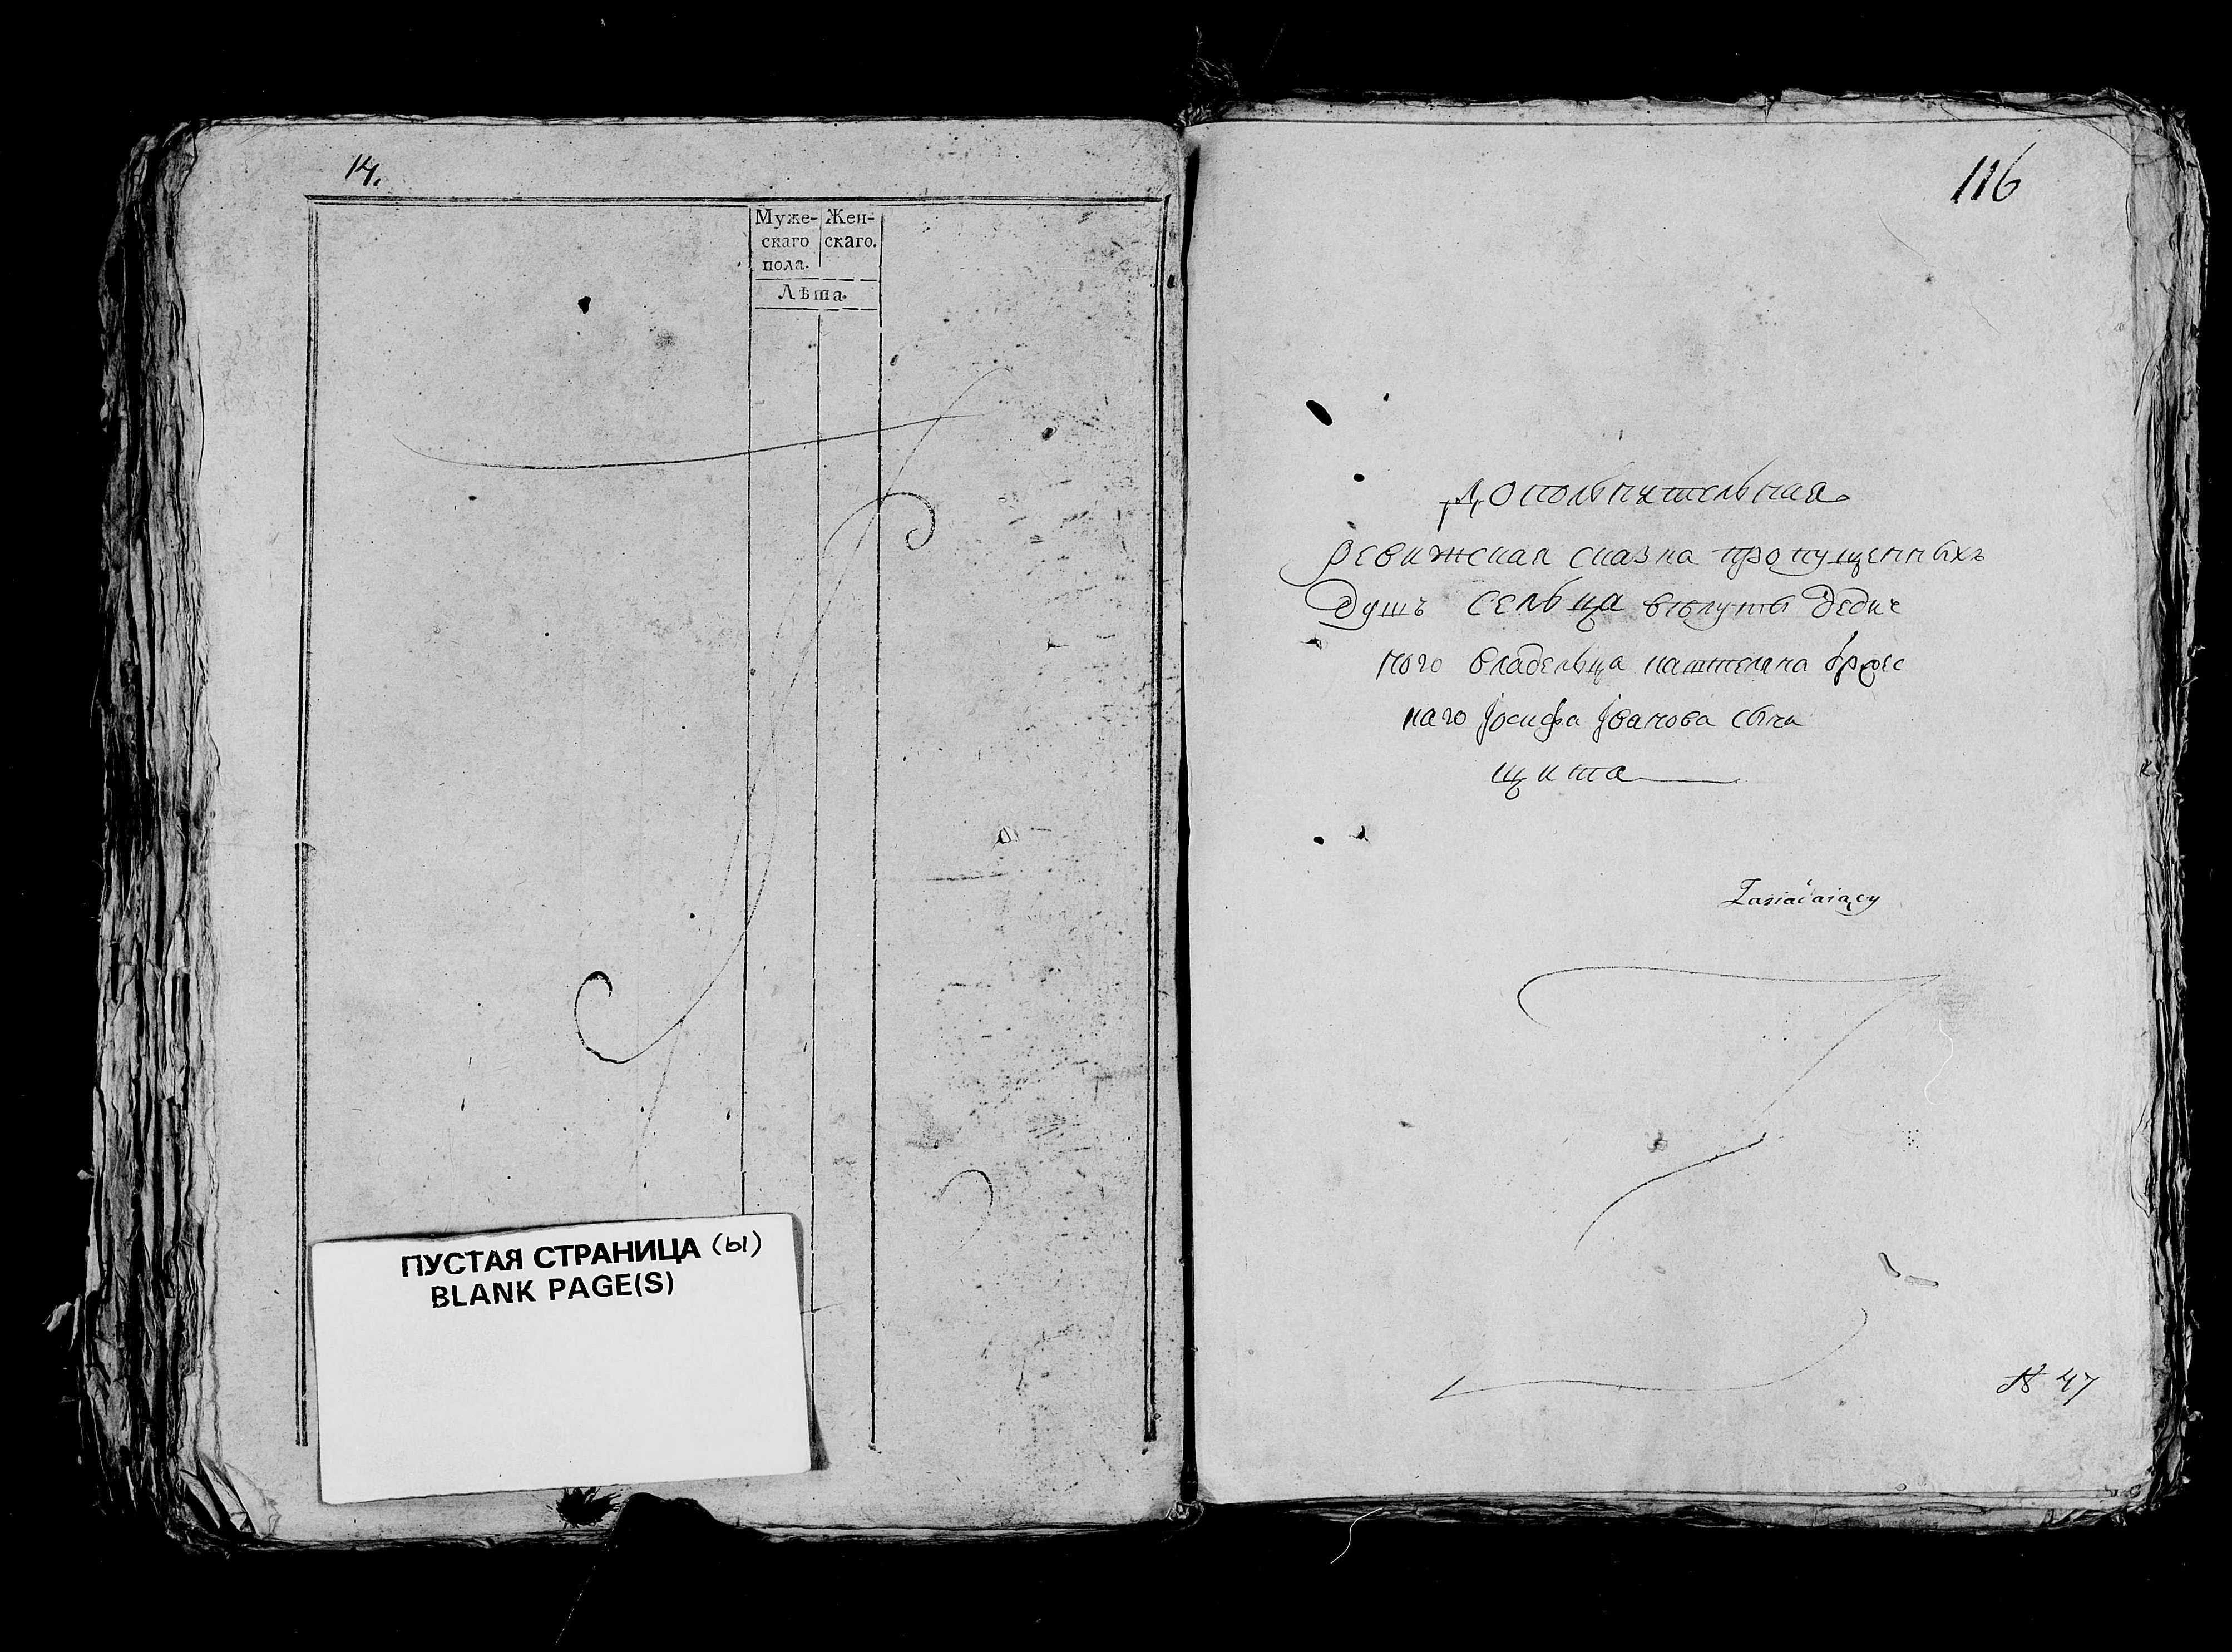 14.
Муже- Жен-
скаго скаго.
пола.
Лѣта.
ПУСТАЯ СТРАНИЦА (ы)
BLANK PAGE(S)
116
Дополнительная
Ревижская сказка пропущенныхъ
душъ сельца дедич
ного владельца каштеляна
каго Јосифа Јванова сына
щита
Zasiadaiący
№ 47